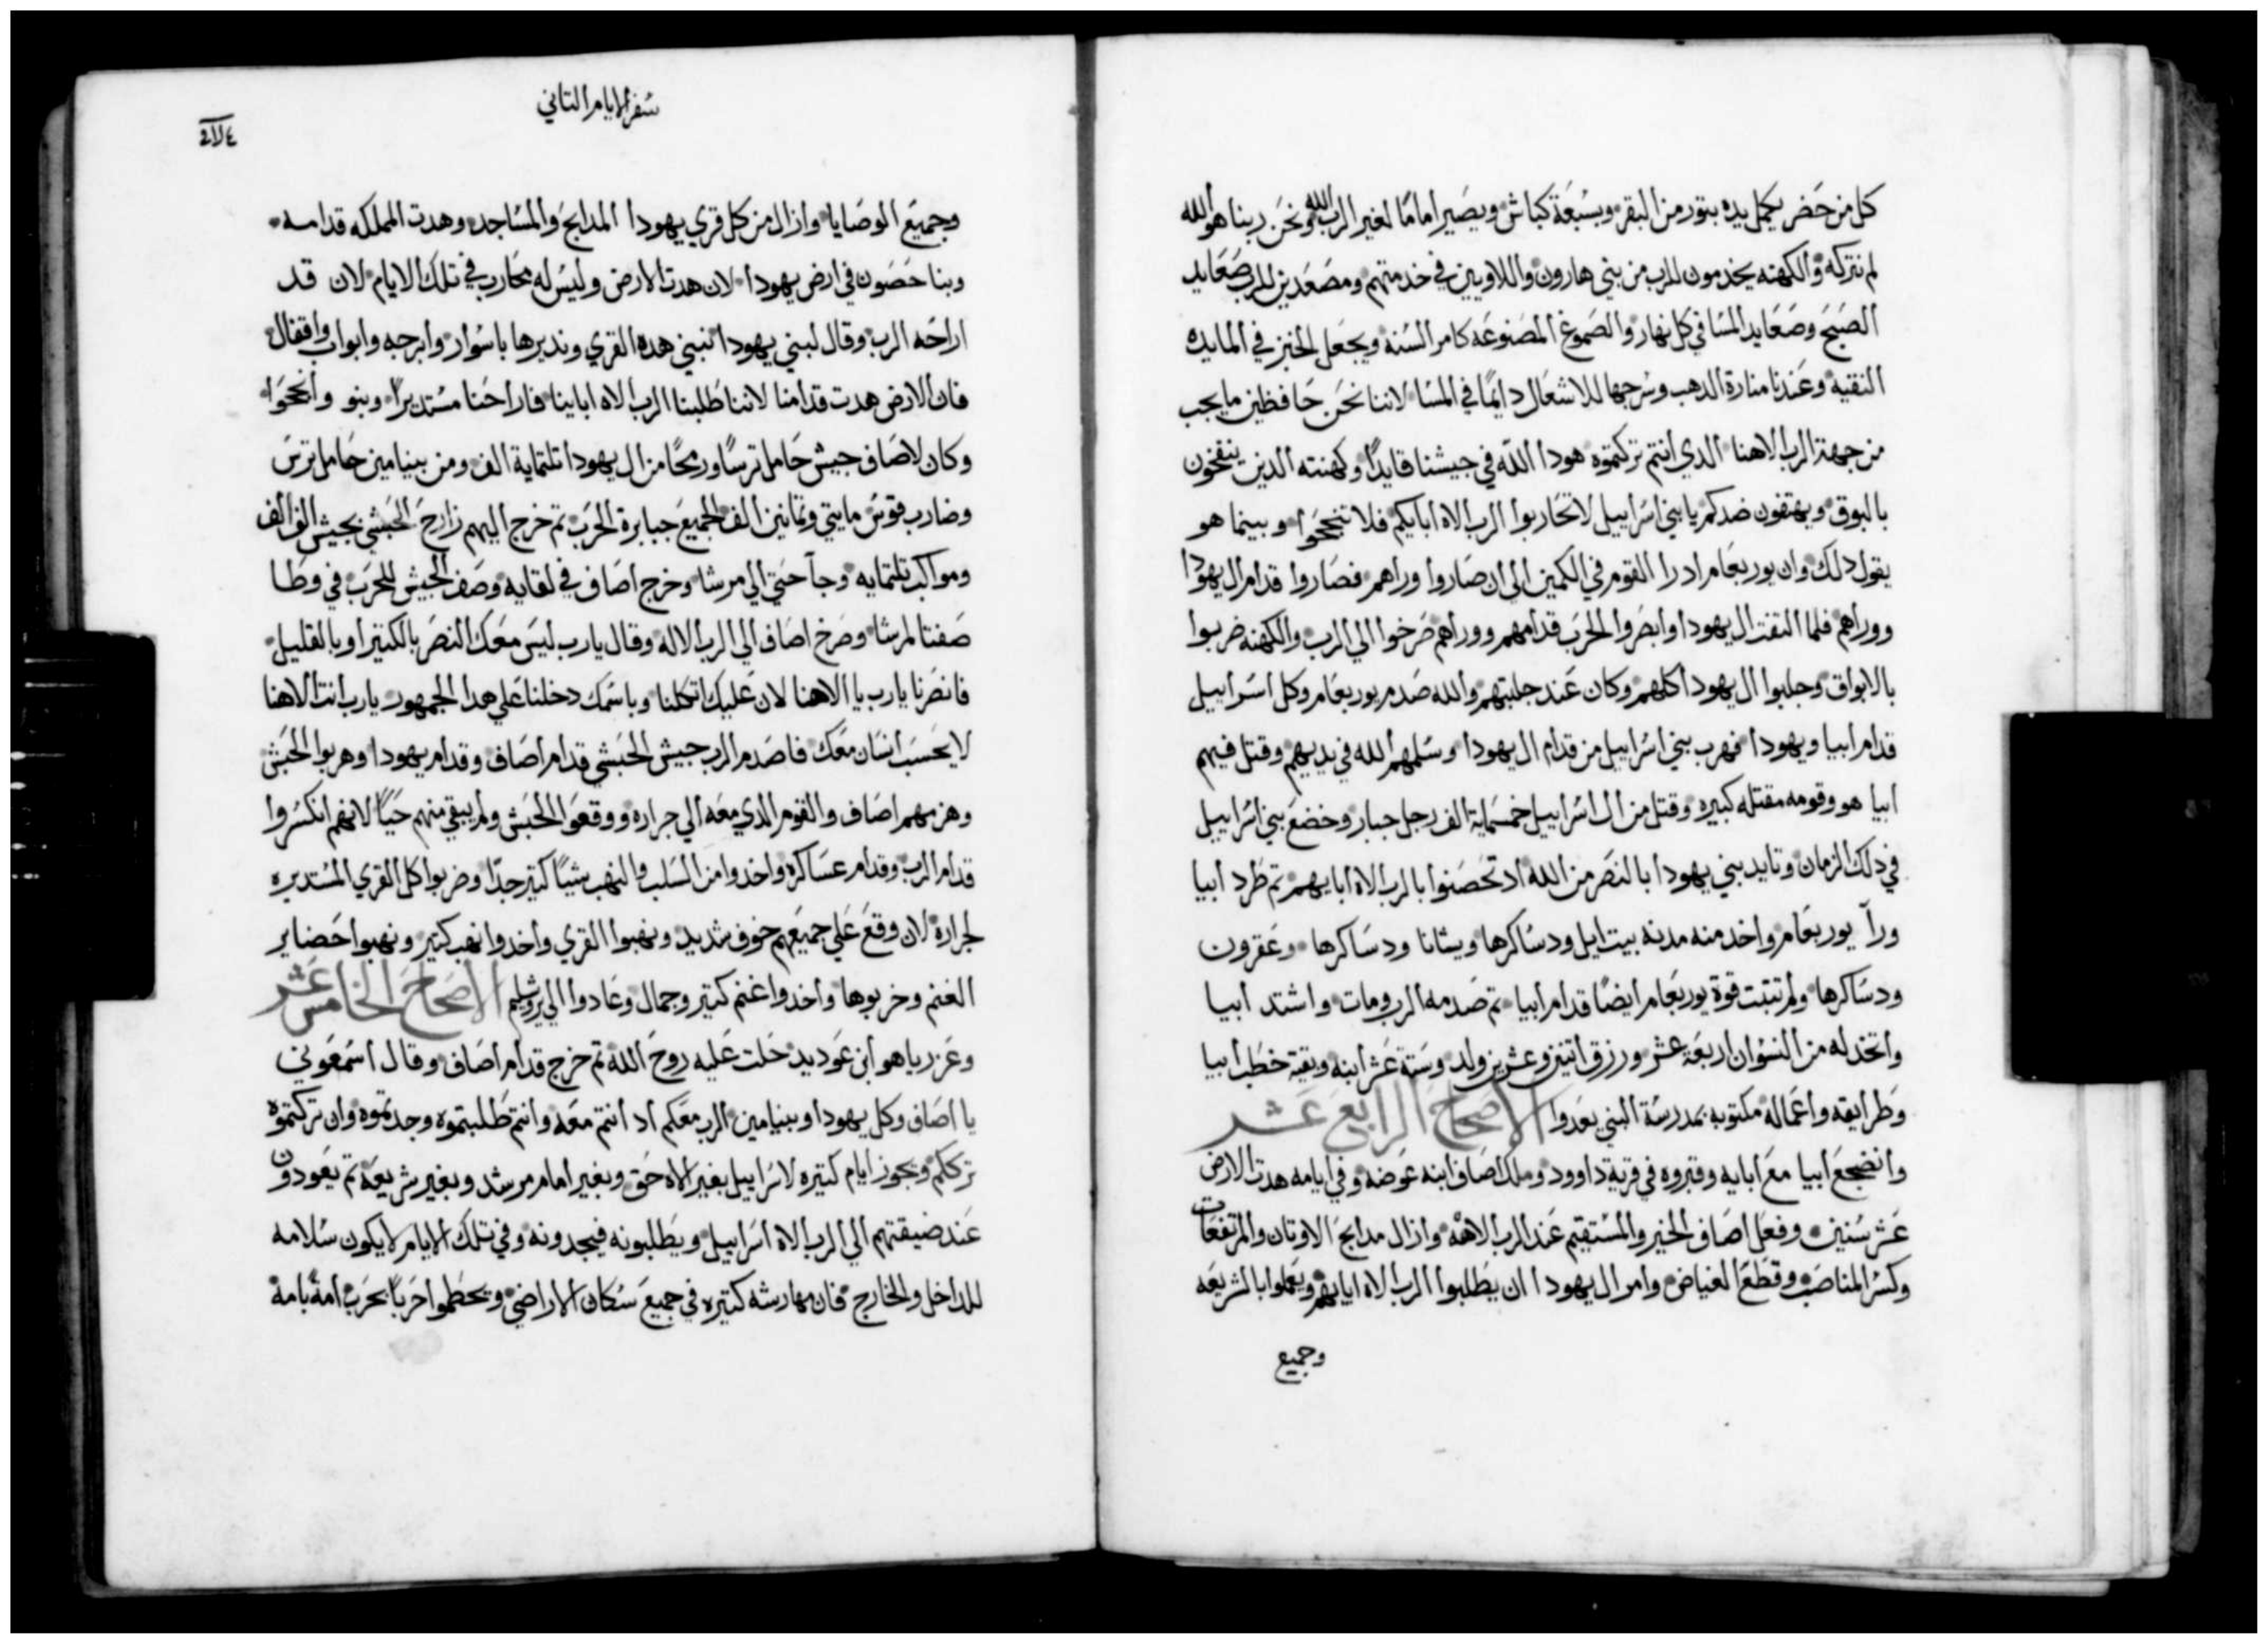 كل من حَضر يكمل يده بتور من البقر وبسَبعَة كباش ويصَير امامًا لغير الرب الله ونحَن ربنا هو الله
لم نتركه والكهنه يخدمون للرب من بني هارون واللاويين في خدمتهم ومصَعَدين للرب صَعَايد
الصَبحَ وصَعَايد المسَا في كل نهار والصَموغ المصَنوعَه كامر السُنه ويجعَل الخبز في المايده
النقيه وعَندنا منارة الدهب وسُرجها للاشعَال دايمًا في المسَا لاننا نحَن حَافظين ما يجب
من جهة الرب الاهنا الدي انتم تركتموه هودا الله في جيشنا قايدًا وكهنته الدين ينفخون
بالبوق ويهتفون ضدكم يا بني اسَراييل لا تحَاربوا الرب الاه ابايكم فلا تنجحَوا وبينما هو
يقول دلك وان يوربعَام ادرا القوم في الكمين الى ان صَاروا وراهم فصَاروا قدام ال يهودا
ووراهم فلما التفت ال يهودا وابصَروا الحَرب قدامهم ووراهم صَرخوا الي الرب والكهنه ضربوا
بالابواق وجلبوا ال يهودا كلهم وكان عَند جلبتهم والله صَدم يوربعَام وكل اسَراييل
قدام ابيا ويهودا فهرب بني اسَراييل من قدام ال يهودا وسَلمهم الله في يديهم وقتل فيهم
ابيا هو وقومه مقتله كبيره وقتل من ال اسَراييل خمسَماية الف رجل جبار وخضعَ بني اسَراييل
في دلك الزمان وتايد بني يهودا بالنصَر من الله اد تحَصَنوا بالرب الاه ابايهم تم طَرد ابيا
ورآ يوربعَام واخد منه مدنه بيت ايل ودسَاكرها ويشانا ودسَاكرها وعَفرون
ودسَاكرها ولم تتبت قوة يوربعَام ايضًا قدام ابيا تم صَدمه الرب ومات واشتد ابيا
واتخد له من النسَوان اربعَة عَشر ورزق اتنين وعَشرين ولد وسَتة عَشر ابنه وبقية خطَب ابيا
وطَرايقه واعَماله مكتوبه بمدرسَة النبي يعَدوا الاصَحاحَ الرابعَ عَشر
وانضجعَ ابيا معَ ابايه وقبروه في قرية داوود وملك اصَاف ابنه عَوضه وفي ايامه هدت الارض
عَشر سَنين وفعَل اصَاف الخير والمسَتقيم عَند الرب الاهه وازال مدابحَ الاوتان والمرتفعَات
وكسَر المناصَب وقطَعَ الغياض وامر ال يهودا ان يطَلبوا الرب الاه ابايهم ويعَملوا بالشريعَه
وجميع
سَفر الايام التاني
وجميعَ الوصَايا وازال من كل قري يهودا المدابحَ والمسَاجد وهدت المملكه قدامه
وبنا حَصَون في ارض يهودا لان هدت الارض وليسَ له محَارب في تلك الايام لان قد
اراحَه الرب وقال لبني يهودا نبني هده القري ونديرها باسَوار وابرجه وابواب واقفال
فان الارض هدت قدامنا لاننا طَلبنا الرب الاه اباينا فاراحَنا مسَتديرًا وبنو وانجحَوا
وكان لاصَاف جيش حَامل ترسًا ورمحًا من ال يهودا تلتماية الف ومن بنيامين حَامل ترسَ
وضارب قوسَ مايتي وتمانين الف الجميعَ جبابرة الحَرب تم خرج اليهم زارحَ الحَبشي بجيش الف الف
ومواكب تلتمايه وجآ حَتي الي مرشا وخرج اصَاف في لقايه وصَف الجيش للحَرب في وطَا
صَفتا لمرشا وصَرخ اصَاف الي الرب الاله وقال يا رب ليسَ معَك النصَر بالكتير او بالقليل
فانصَرنا يا رب يا الاهنا لان عَليك اتكلنا وباسَمك دخلنا عَلي هدا الجمهور يا رب انت الاهنا
لا يحَسَب انسَان معَك فاصَدم الرب جيش الحَبشي قدام اصَاف وقدام يهودا وهربوا الحَبش
وهزمهم اصَاف والقوم الدي معَه الي جراره ووقعَوا الحَبش ولم يبقي منهم حَيًا لانهم انكسَروا
قدام الرب وقدام عسَاكره واخدوا من السَلب والنهب شيًا كتير جدًا وضربوا كل القري المسَتديره
لجراره لان وقعَ عَلي جميعَهم خوف شديد ونهبوا القري واخدوا نهب كتير ونهبوا حَضاير
الغنم وخربوها واخدوا غنم كتير وجمال وعَادوا الي يروشليم الاصَحاحَ الخامسَ عَشر
وعَزرياهو ابن عَوديد حَلت عَليه روحَ الله تم خرج قدام اصَاف وقال اسَمعَوني
يا اصَاف وكل يهودا وبنيامين الرب معَكم اد انتم معَه وانتم طَلبتموه وجدتموه وان تركتموه
ترككم وتجوز ايام كتيره لاسَراييل بغير الاه حَق وبغير امام مرشد وبغير شريعَة تم يعَودون
عَند ضيقتهم الي الرب الاه اسَراييل ويطَلبونه فيجدونه وفي تلك الايام لا يكون سَلامه
للداخل والخارج فان مهارشه كتيره في جميعَ سَكان الاراضي ويحَطَموا حَربًا بحَرب امة بامة